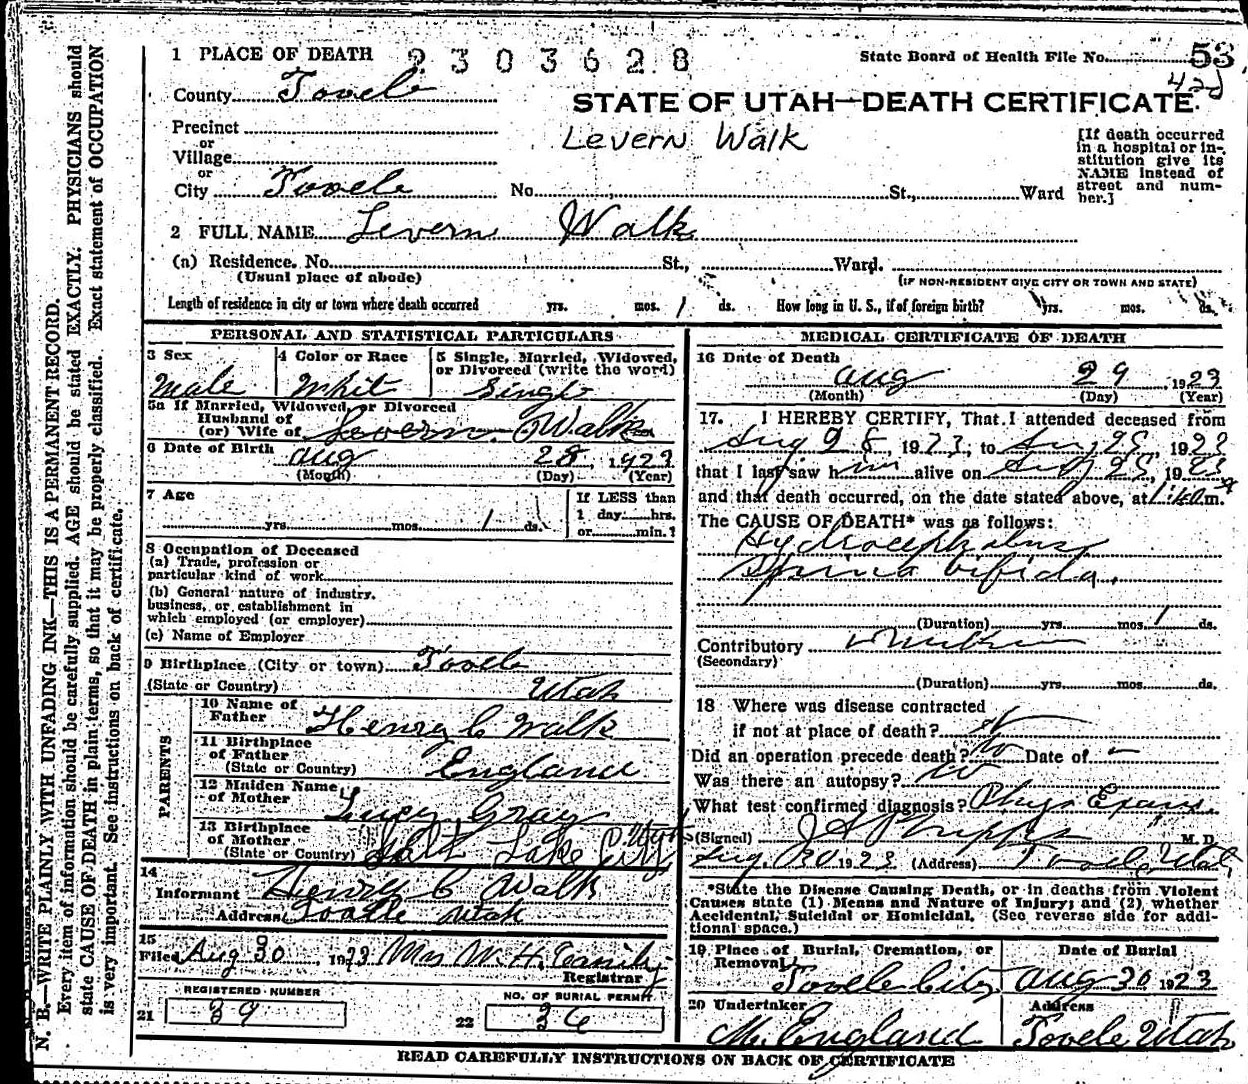 1 PLACE OF DEATH 2303628
State Board of Health File No. 53
42d
County Tooele
STATE OF UTAH—DEATH CERTIFICATE
Levern Walk
Precinct
or
Village
or
City Tooele No. St., Ward
[If death occurred
in a hospital or in-
stitution give its
NAME instead of
street and num-
ber.]
2 FULL NAME Levern Walk
(a) Residence. No. St., Ward.
(Usual place of abode) (IF NON-RESIDENT GIVE CITY OR TOWN AND STATE)
Length of residence in city or town where death occurred yrs. mos. 1 ds. How long in U. S., if of foreign birth? yrs. mos. ds.
PERSONAL AND STATISTICAL PARTICULARS
3 Sex
Male
4 Color or Race
Whit
5 Single, Married, Widowed,
or Divorced (write the word)
Single
5a If Married, Widowed, or Divorced
Husband of
(or) Wife of Levern Walk
6 Date of Birth Aug 28, 1923
(Month) (Day) (Year)
7 Age
yrs. mos. 1 ds.
If LESS than
1 day hrs.
or min.?
8 Occupation of Deceased
(a) Trade, profession or
particular kind of work
(b) General nature of industry,
business, or establishment in
which employed (or employer)
(c) Name of Employer
9 Birthplace (City or town) Tooele
(State or Country) Utah
PARENTS
10 Name of
Father Henry C Walk
11 Birthplace
of Father
(State or Country) England
12 Maiden Name
of Mother Lucy Gray
13 Birthplace
of Mother
(State or Country) Salt Lake City Utah
14
Informant Henry C Walk
Address Tooele Utah
15
Filed Aug 30, 1923 Mrs W. H.
Registrar
REGISTERED NUMBER
21 39
NO. OF BURIAL PERMIT
22 36
MEDICAL CERTIFICATE OF DEATH
16 Date of Death
Aug 29, 1923
(Month) (Day) (Year)
17. I HEREBY CERTIFY, That I attended deceased from
Aug 28, 1923, to Aug 28, 1923
that I last saw him alive on Aug 28, 1923
and that death occurred, on the date stated above, at 1:40 m.
The CAUSE OF DEATH* was as follows:
Hydrocephalus
Spina bifida.
(Duration) yrs. mos. 1 ds.
Contributory
(Secondary)
(Duration) yrs. mos. ds.
18 Where was disease contracted
if not at place of death?
Did an operation precede death? No Date of —
Was there an autopsy? No
What test confirmed diagnosis? Phys Exam.
(Signed) J A Phipps M. D.
Aug. 30 1923 (Address) Tooele, Utah
*State the Disease Causing Death, or in deaths from Violent
Causes state (1) Means and Nature of Injury; and (2) whether
Accidental, Suicidal or Homicidal. (See reverse side for addi-
tional space.)
19 Place of Burial, Cremation, or
Removal
Tooele City
Date of Burial
Aug 30 1923
20 Undertaker
M. England
Address
Tooele Utah
READ CAREFULLY INSTRUCTIONS ON BACK OF CERTIFICATE
N. B.—WRITE PLAINLY WITH UNFADING INK—THIS IS A PERMANENT RECORD.
Every item of information should be carefully supplied. AGE should be stated EXACTLY. PHYSICIANS should
state CAUSE OF DEATH in plain terms, so that it may be properly classified. Exact statement of OCCUPATION
is very important. See instructions on back of certificate.